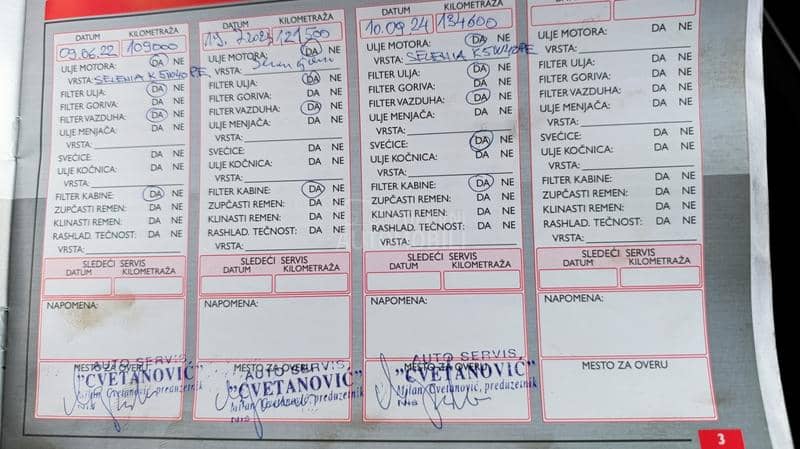 DATUM KILOMETRAŽA
09.06.22 109000
ULJE MOTORA: DA NE
VRSTA: SELENIA K 5W40 PE
FILTER ULJA: DA NE
FILTER GORIVA: DA NE
FILTER VAZDUHA: DA NE
ULJE MENJAČA: DA NE
VRSTA:
SVEĆICE: DA NE
ULJE KOČNICA: DA NE
VRSTA:
FILTER KABINE: DA NE
ZUPČASTI REMEN: DA NE
KLINASTI REMEN: DA NE
RASHLAD. TEČNOST: DA NE
VRSTA:
SLEDEĆI SERVIS
DATUM KILOMETRAŽA
NAPOMENA:
MESTO ZA OVERU
AUTO SERVIS,
"CVETANOVIĆ"
Milan Cvetanović, preduzetnik
Niš
DATUM KILOMETRAŽA
19. 7 2023 121500
ULJE MOTORA: DA NE
VRSTA:
FILTER ULJA: DA NE
FILTER GORIVA: DA NE
FILTER VAZDUHA: DA NE
ULJE MENJAČA: DA NE
VRSTA:
SVEĆICE: DA NE
ULJE KOČNICA: DA NE
VRSTA:
FILTER KABINE: DA NE
ZUPČASTI REMEN: DA NE
KLINASTI REMEN: DA NE
RASHLAD. TEČNOST: DA NE
VRSTA:
SLEDEĆI SERVIS
DATUM KILOMETRAŽA
NAPOMENA:
MESTO ZA OVERU
AUTO SERVIS,
"CVETANOVIĆ"
Milan Cvetanović, preduzetnik
Niš
DATUM KILOMETRAŽA
10.09.24 134600
ULJE MOTORA: DA NE
VRSTA: SELENIA K 5W40 PE
FILTER ULJA: DA NE
FILTER GORIVA: DA NE
FILTER VAZDUHA: DA NE
ULJE MENJAČA: DA NE
VRSTA:
SVEĆICE: DA NE
ULJE KOČNICA: DA NE
VRSTA:
FILTER KABINE: DA NE
ZUPČASTI REMEN: DA NE
KLINASTI REMEN: DA NE
RASHLAD. TEČNOST: DA NE
VRSTA:
SLEDEĆI SERVIS
DATUM KILOMETRAŽA
NAPOMENA:
MESTO ZA OVERU
AUTO SERVIS,
"CVETANOVIĆ"
Milan Cvetanović, preduzetnik
Niš
DATUM KILOMETRAŽA
ULJE MOTORA: DA NE
VRSTA:
FILTER ULJA: DA NE
FILTER GORIVA: DA NE
FILTER VAZDUHA: DA NE
ULJE MENJAČA: DA NE
VRSTA:
SVEĆICE: DA NE
ULJE KOČNICA: DA NE
VRSTA:
FILTER KABINE: DA NE
ZUPČASTI REMEN: DA NE
KLINASTI REMEN: DA NE
RASHLAD. TEČNOST: DA NE
VRSTA:
SLEDEĆI SERVIS
DATUM KILOMETRAŽA
NAPOMENA:
MESTO ZA OVERU
3